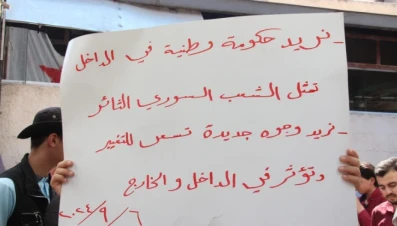 - نريد حكومة وطنية في الداخل
تمثل الشعب السوري الثائر
- نريد وجوه جديدة تسعى للتغيير
وتؤثر في الداخل والخارج
٢٠٢٤/٩/٦